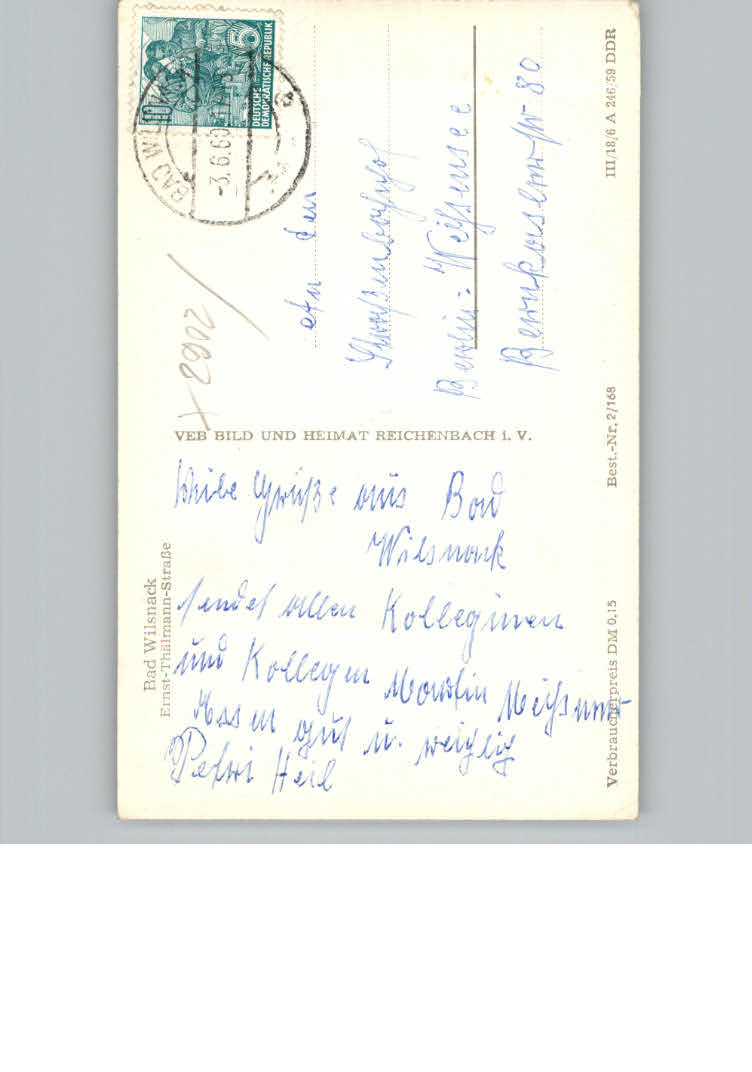 Bad Wilsnack
Ernst-Thälmann-Straße
Viele Grüße aus Bad
Wilsnack
sendet allen Kolleginen
und Kollegen Martin Meißner
Essen gut u.
Petri Heil
VEB BILD UND HEIMAT REICHENBACH i. V.
DEUTSCHE
DEMOKRATISCHE REPUBLIK
5
BAD WILSNACK
-3.6.60
a
+ 2902 /
An den
Straßenbahnhof
Berlin-Weißensee
Bernkastelerstr 80
Verbraucherpreis DM 0,15
Best.-Nr. 2/168
III/18/6 A 246/59 DDR